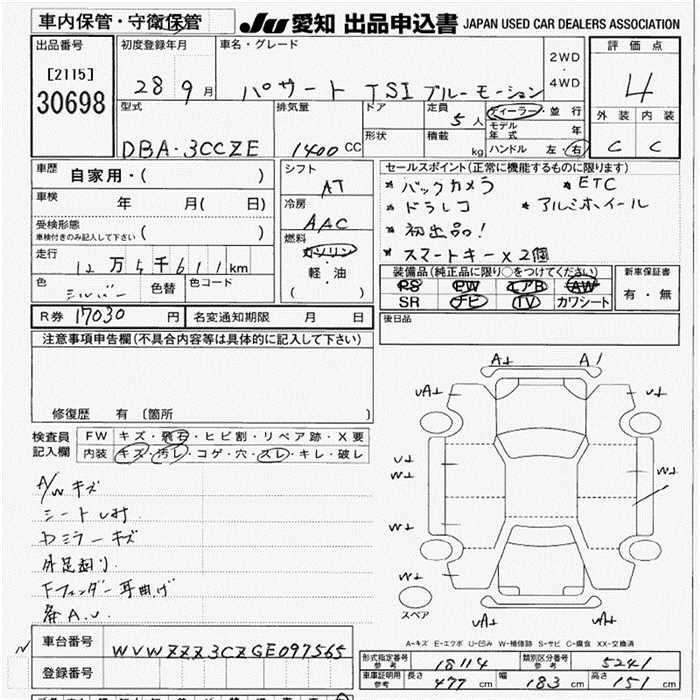 車内保管・守衛保管
JU 愛知 出品申込書 JAPAN USED CAR DEALERS ASSOCIATION
出品番号
[2115]
30698
初度登録年月
28 9月
車名・グレード
パサート TSI ブルーモーション
2WD
・
4WD
評価点
4
外装 内装
C C
型式
DBA・3CCZE
排気量
1400 CC
ドア
形状
定員
5人
積載
kg
ディーラー・並行
モデル年式 年
ハンドル 左・右
車歴
自家用・( )
車検 年 月( 日)
受検形態
車検付きのみ記入して下さい ( )
走行
12万5千611km
色
シルバー
色替
色コード
シフト
AT
冷房
AAC
燃料
ガソリン
・
軽・油
( )
セールスポイント(正常に機能するものに限ります)
* バックカメラ * ETC
* ドラレコ * アルミホイール
* 初出品!
* スマートキー×2個
装備品(純正品に限り○をつけてください)
PS PW エアB AW
SR ナビ TV カワシート
新車保証書
有・無
R券 17030 円
名変通知期限 月 日
後日品
注意事項申告欄(不具合内容等は具体的に記入して下さい)
修復歴 有 [箇所 )
検査員記入欄
FW キズ・飛石・ヒビ割・リペア跡・X要
内装 キズ・汚レ・コゲ・穴・スレ・キレ・破レ
A/W キズ
ドミラーキズ
Fフェンダー耳曲げ
A⊥ A1
uA⊥ u⊥
u⊥
W⊥ W⊥
W⊥
W⊥
uA⊥ uA⊥
スペア
A-キズ E-エクボ U-凹み W-補修跡 S-サビ C-腐食 XX-交換済
車台番号
WVWZZZ3CZGE097565
登録番号
形式指定番号
参考
18114
類別区分番号
参考
5241
車庫証明用
参考
長さ 477 cm
幅 183 cm
高さ 151 cm